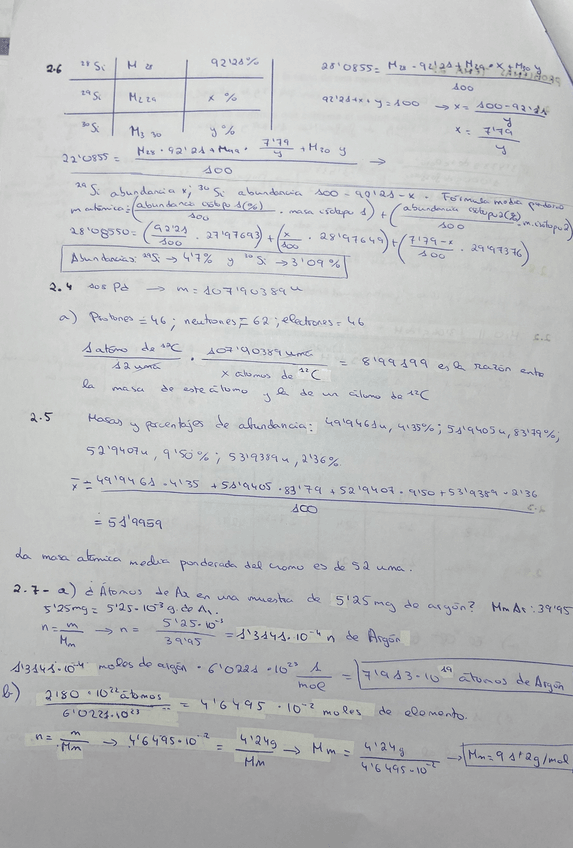 2.6 ²⁸Si M 28 92'21% 28'0855 = M28 · 92'21 + M29 · x + M30 y / 100
²⁹Si M2 29 x % 92'21 + x + y = 100 → x = 100 - 92'21 / y
³⁰Si M3 30 y % x = 7'79 / y
22'0855 = M28 · 92'21 + M29 · 7'79/y + M30 y / 100 →
²⁹Si abundancia x; ³⁰Si abundancia 100 - 92'21 - x. Fórmula media
m atómica = (abundancia isótopo 1(%) / 100 · masa isótopo 1) + (abundancia isótopo 2(%) / 100 · m. isótopo 2)
28'08550 = (92'21/100 · 27'97693) + (x/100 · 28'97649) + (7'79 - x/100 · 29'97376)
Abundancias: ²⁹Si → 4'7% y ³⁰Si → 3'09%
2.4 108 Pd → m = 107'90389 u
a) Protones = 46; neutrones = 62; electrones = 46
1 átomo de ¹²C / 12 uma · 107'90389 uma / x átomos de ¹²C = 8'99199 es la razón entre
la masa de este átomo y la de un átomo de ¹²C
2.5 Masas y porcentajes de abundancia: 49'9461u, 4'35%; 51'9405u, 83'79%;
52'9407u, 9'50%; 53'9389u, 2'36%
x̄ = 49'9461 · 4'35 + 51'9405 · 83'79 + 52'9407 · 9'50 + 53'9389 · 2'36 / 100
= 51'9959
La masa atómica media ponderada del cromo es de 52 uma.
2.7- a) ¿Átomos de Ar en una muestra de 5'25mg de argón? Mm Ar: 39'95
5'25mg = 5'25·10⁻³ g de Ar.
n = m/Mm → n = 5'25·10⁻³ / 39'95 = 1'3141·10⁻⁴ n de Argón
1'3141·10⁻⁴ moles de argón · 6'0221·10²³ 1/mol = 7'913·10¹⁹ átomos de Argón
b) 2'80·10²² átomos / 6'0221·10²³ = 4'6495·10⁻² moles de elemento.
n = m/Mm → 4'6495·10⁻² = 4'24g / Mm → Mm = 4'24g / 4'6495·10⁻² → Mm = 91'2g/mol